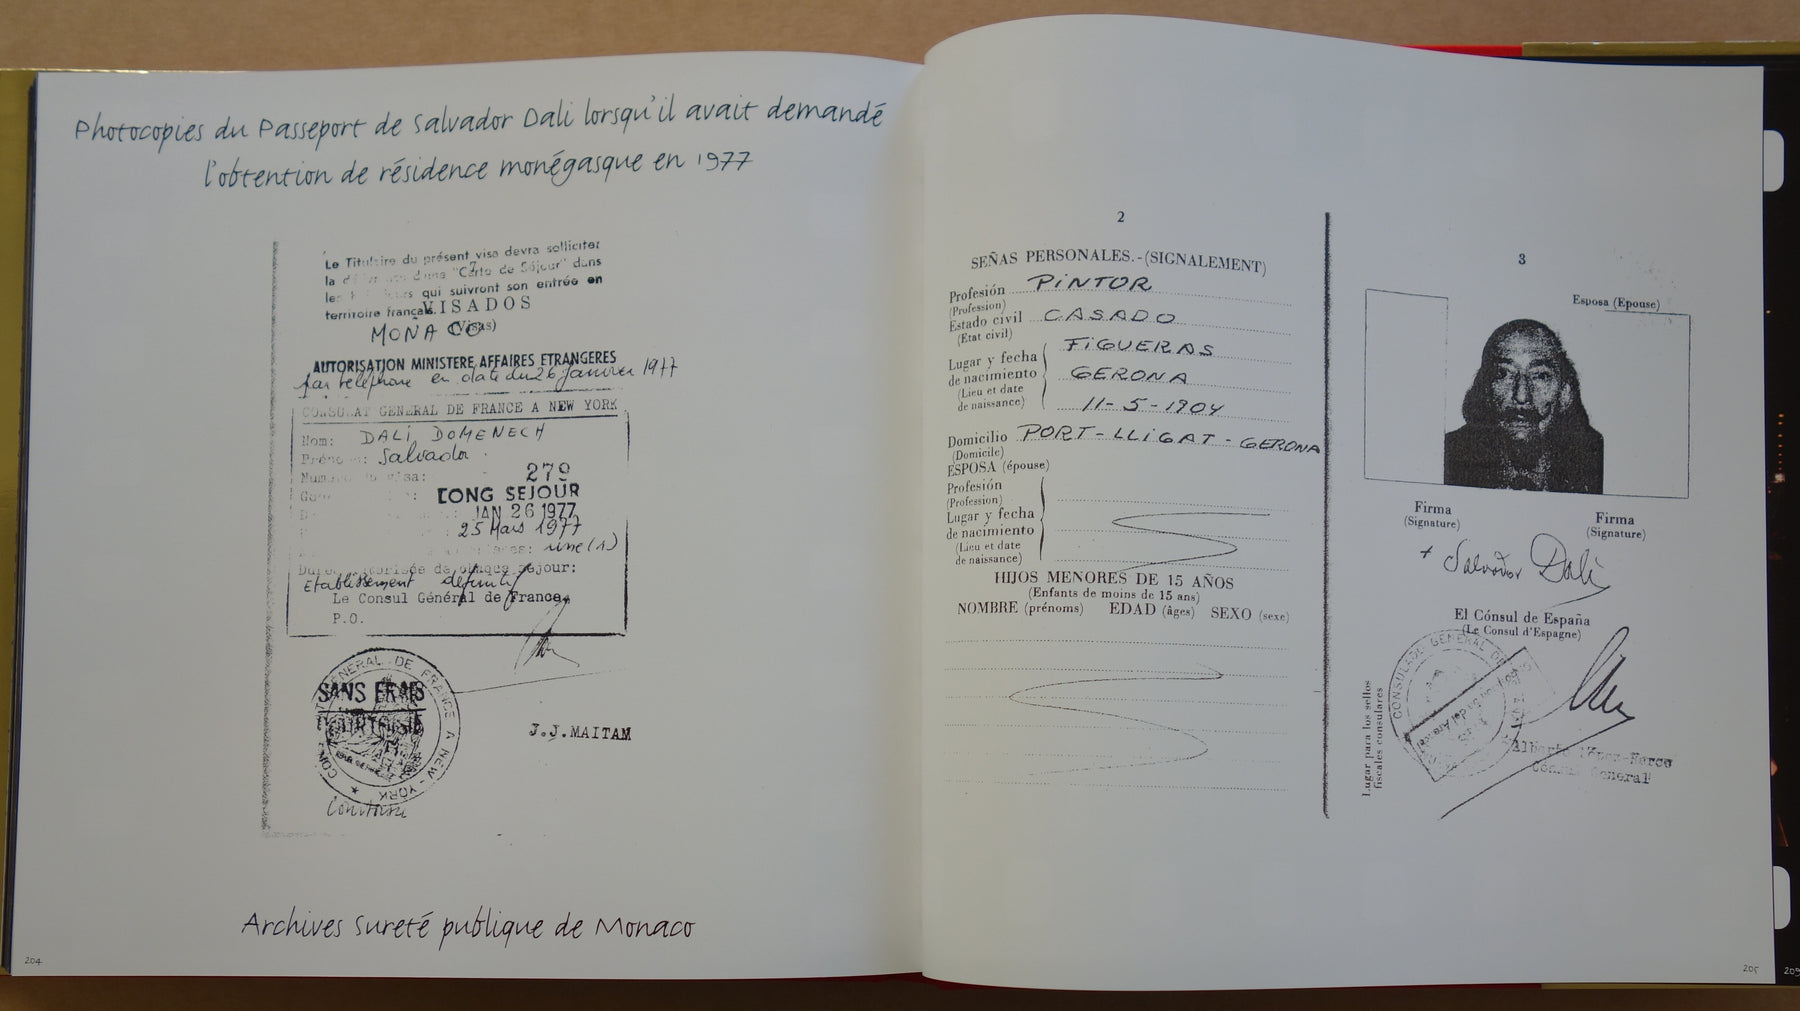 Photocopies du Passeport de Salvador Dali lorsqu'il avait demandé
l'obtention de résidence monégasque en 1977
Le Titulaire du présent visa devra solliciter
la "Carte de Séjour" dans
les qui suivront son entrée en
territoire français.
VISADOS
(Visas)
MONACO
AUTORISATION MINISTERE AFFAIRES ETRANGERES
par téléphone en date du 26 janvier 1977
CONSULAT GENERAL DE FRANCE A NEW YORK
Nom: DALI DOMENECH
Salvador
visa: 279
LONG SEJOUR
JAN 26 1977
25 Mars 1977
une (1)
Durée autorisée de chaque séjour:
Etablissement définitif
Le Consul Général de France,
P.O.
CONSULAT GENERAL DE FRANCE A NEW-YORK
SANS FRAIS
COURTOISIE
J.J.MAITAM
Archives Sureté publique de Monaco
204
2
SEÑAS PERSONALES.-(SIGNALEMENT)
Profesión PINTOR
(Profession)
Estado civil CASADO
(Etat civil)
Lugar y fecha de nacimiento FIGUERAS
(Lieu et date de naissance) GERONA
11-5-1904
Domicilio PORT-LLIGAT-GERONA
(Domicile)
ESPOSA (épouse)
Profesión
(Profession)
Lugar y fecha
de nacimiento
(Lieu et date
de naissance)
HIJOS MENORES DE 15 AÑOS
(Enfants de moins de 15 ans)
NOMBRE (prénoms) EDAD (âges) SEXO (sexe)
3
Esposa (Epouse)
Firma
(Signature)
Firma
(Signature)
+ Salvador Dalí
El Cónsul de España
(Le Consul d'Espagne)
Lugar para los sellos
fiscales consulares
Cónsul General
205
209